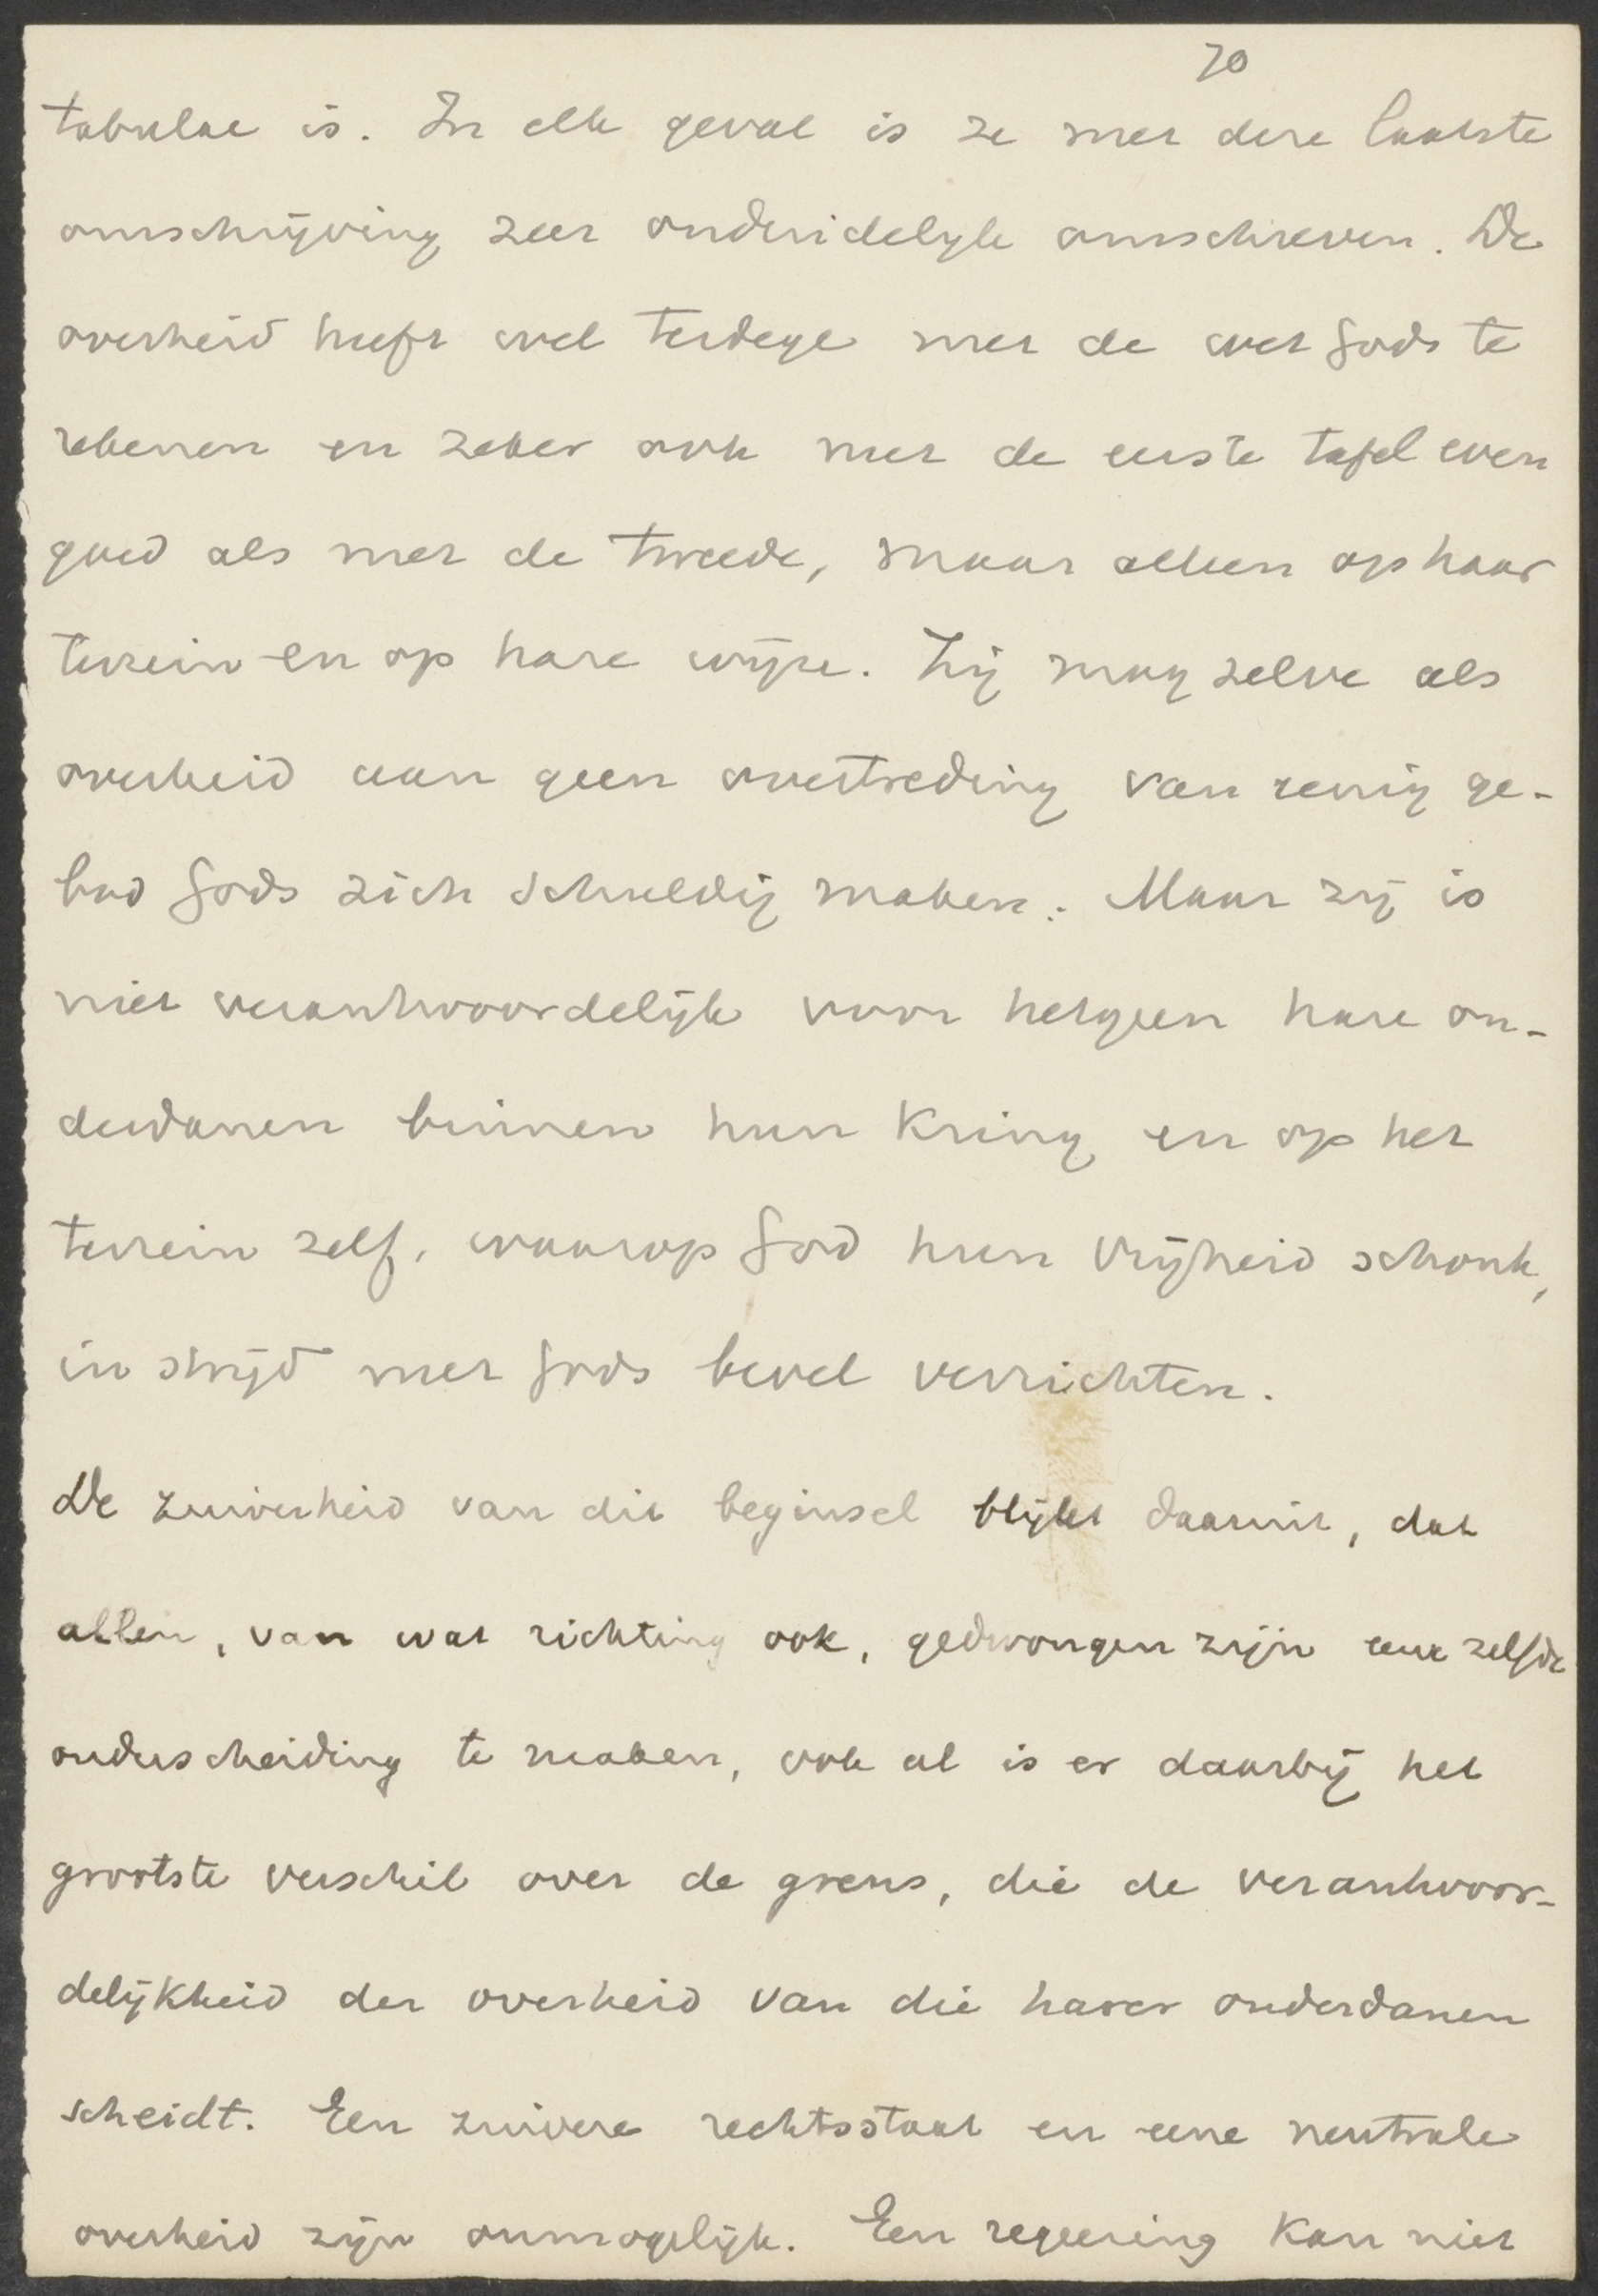 70
tabulae is. In elk geval is ze met deze laatste
omschrijving zeer onduidelijk omschreven. De
overheid heeft wel terdege met de wet Gods te
rekenen en zeker ook met de eerste tafel even
goed als met de tweede, maar alleen op haar
terrein en op hare wijze. Zij mag zelve als
overheid aan geen overtreding van eenig ge-
bod Gods zich schuldig maken. Maar zij is
niet verantwoordelijk voor hetgeen hare on-
derdanen binnen hun kring en op het
terrein zelf, waarop God hun vrijheid schonk,
in strijd met Gods bevel verrichten.
De zuiverheid van dit beginsel blijkt daaruit, dat
allen, van wat richting ook, gedwongen zijn eene zelfde
onderscheiding te maken, ook al is er daarbij het
grootste verschil over de grens, die de verantwoor-
delijkheid der overheid van die harer onderdanen
scheidt. Een zuivere rechtsstaat en eene neutrale
overheid zijn onmogelijk. Een regeering kan niet